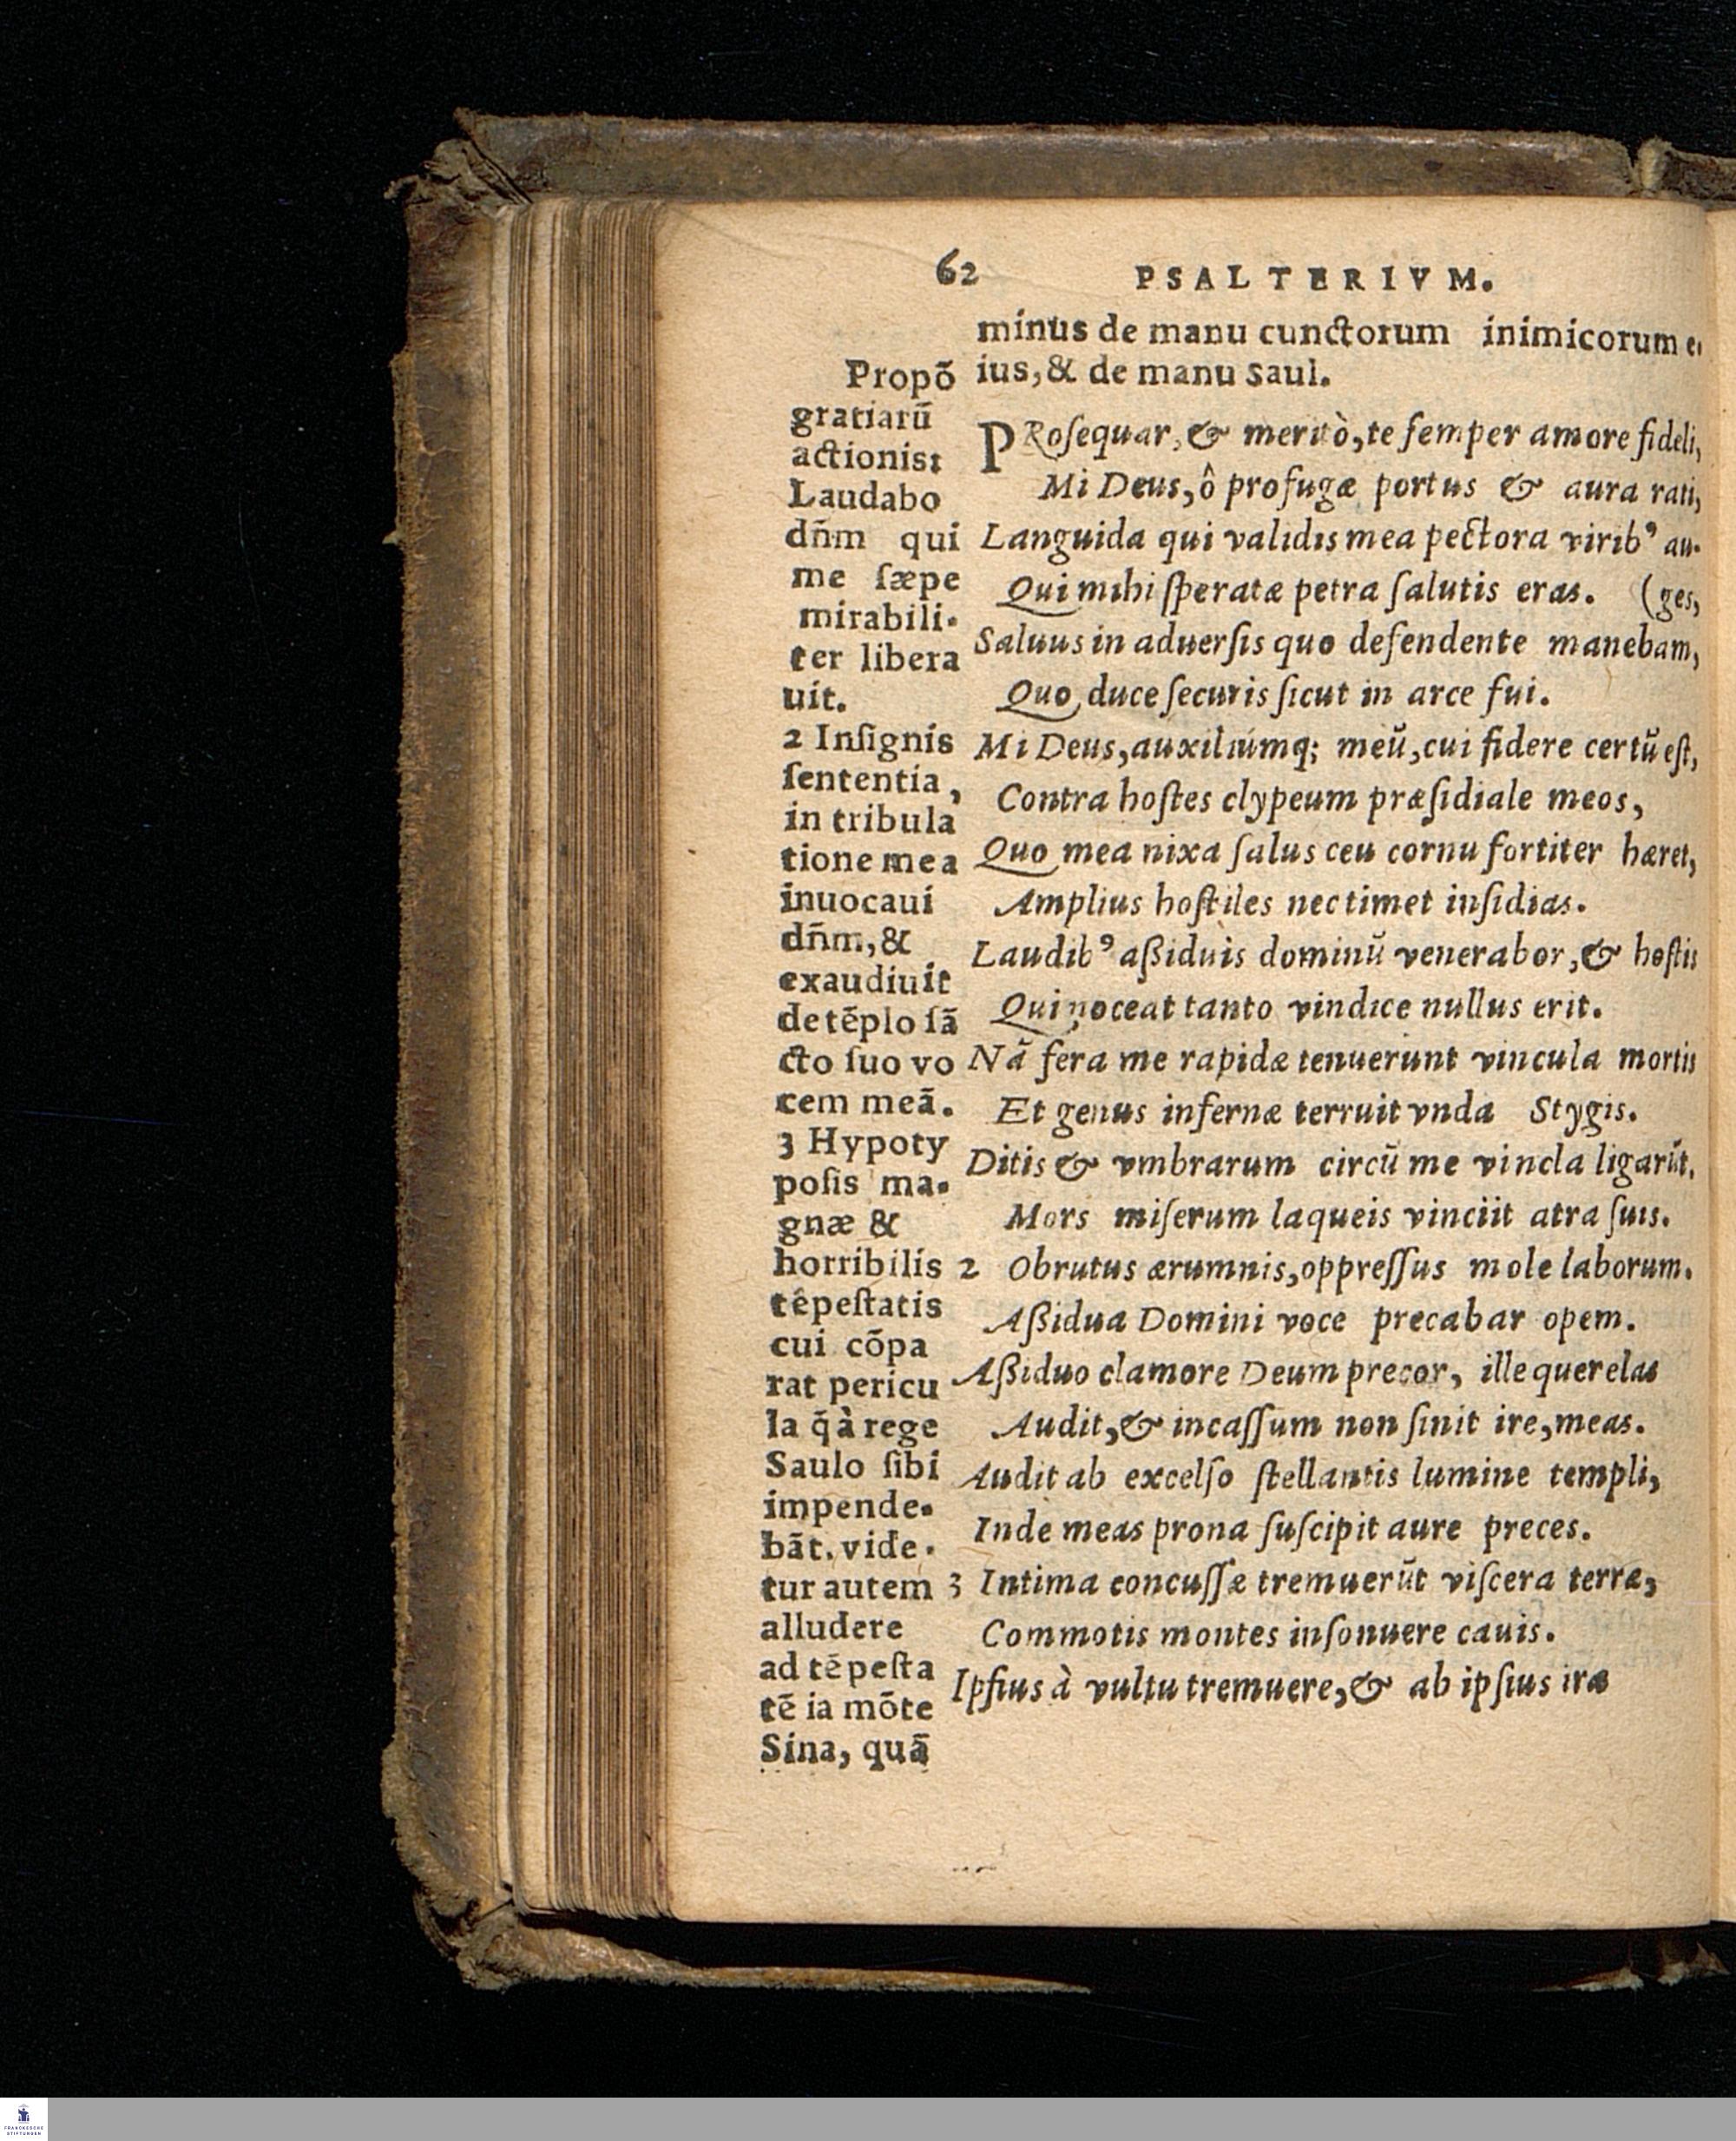 62 PSALTERIVM.
minus de manu cunctorum inimicorum e
ius,& de manu Saul.
PRoſequar,& meritò,te ſemper amore fideli,
Mi Deus,ô profugæ portus & aura rati,
Languida qui validis mea pectora virib⁹ au-
Qui mihi ſperatæ petra ſalutis eras. (ges,
Saluus in aduerſis quo defendente manebam,
Quo duce ſecuris ſicut in arce fui.
Mi Deus,auxiliúmq; meũ,cui fidere certũ eſt,
Contra hoſtes clypeum præſidiale meos,
Quo mea nixa ſalus ceu cornu fortiter hæret,
Amplius hoſtiles nec timet inſidias.
Laudib⁹ aßiduis dominũ venerabor,& hoſtis
Qui noceat tanto vindice nullus erit.
Nã fera me rapidæ tenuerunt vincula mortis
Et genus infernæ terruit vnda Stygis.
Ditis & vmbrarum circũ me vincla ligarũt,
Mors miſerum laqueis vinciit atra ſuis.
2 Obrutus ærumnis,oppreſſus mole laborum.
Aßidua Domini voce precabar opem.
Aßiduo clamore Deum precor, ille querelas
Audit,& incaſſum non ſinit ire,meas.
Audit ab excelſo ſtellantis lumine templi,
Inde meas prona ſuſcipit aure preces.
3 Intima concuſſæ tremuerũt viſcera terræ,
Commotis montes inſonuere cauis.
Ipſius à vultu tremuere,& ab ipſius iræ
Propõ
gratiarũ
actionis:
Laudabo
dñm qui
me ſæpe
mirabili-
ter libera
uit.
2 Inſignis
ſententia,
in tribula
tione mea
inuocaui
dñm,&
exaudiuit
de tẽplo ſã
cto ſuo vo
cem meã.
3 Hypoty
poſis ma-
gnæ &
horribilis
tẽpeſtatis
cui cõpa
rat pericu
la q̃ à rege
Saulo ſibi
impende-
bãt. vide-
tur autem
alludere
ad tẽpeſta
tẽ ia mõte
Sina, quã
FRANCKESCHE
STIFTUNGEN